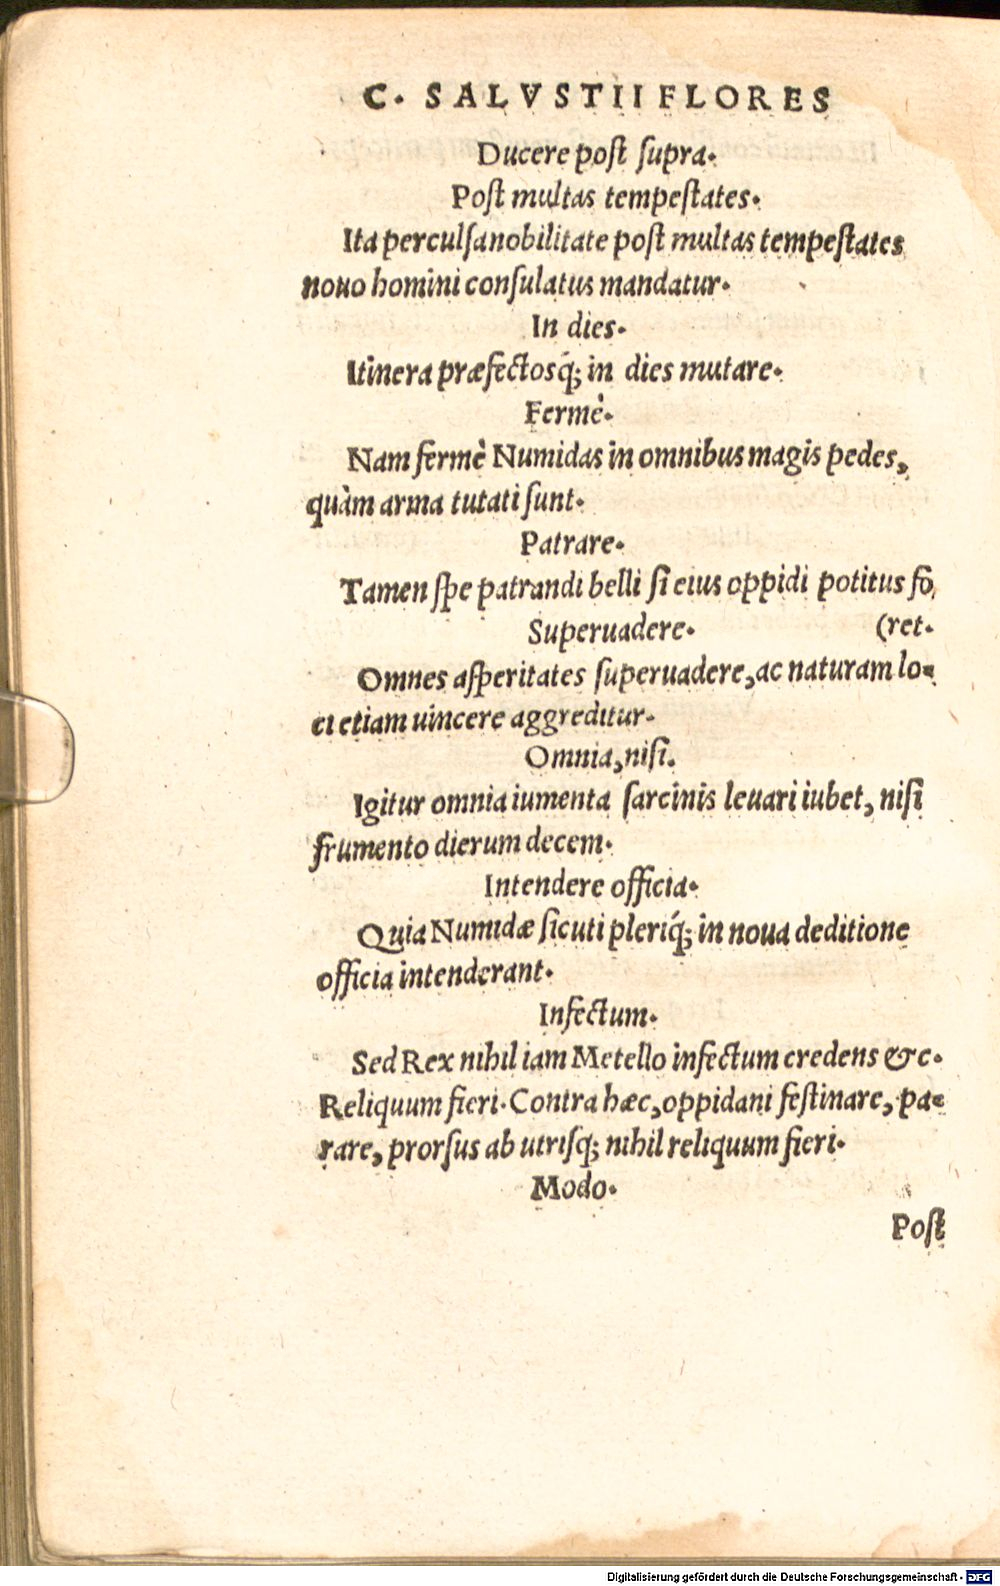 C. SALVSTII FLORES
Ducere post supra.
Post multas tempestates.
Ita perculsa nobilitate post multas tempestates
nouo homini consulatus mandatur.
In dies.
Itinera præfectosq́; in dies mutare.
Fermè.
Nam fermè Numidas in omnibus magis pedes,
quàm arma tutati sunt.
Patrare.
Tamen spe patrandi belli si eius oppidi potitus fo,
Superuadere. (ret.
Omnes asperitates superuadere, ac naturam lo-
ci etiam uincere aggreditur.
Omnia, nisi.
Igitur omnia iumenta sarcinis leuari iubet, nisi
frumento dierum decem.
Intendere officia.
Quia Numidæ sicuti pleriq́; in noua deditione
officia intenderant.
Infectum.
Sed Rex nihil iam Metello infectum credens &c.
Reliquum fieri. Contra hæc, oppidani festinare, pa-
rare, prorsus ab utrisq; nihil reliquum fieri.
Modo.
Post
Digitalisierung gefördert durch die Deutsche Forschungsgemeinschaft - DFG